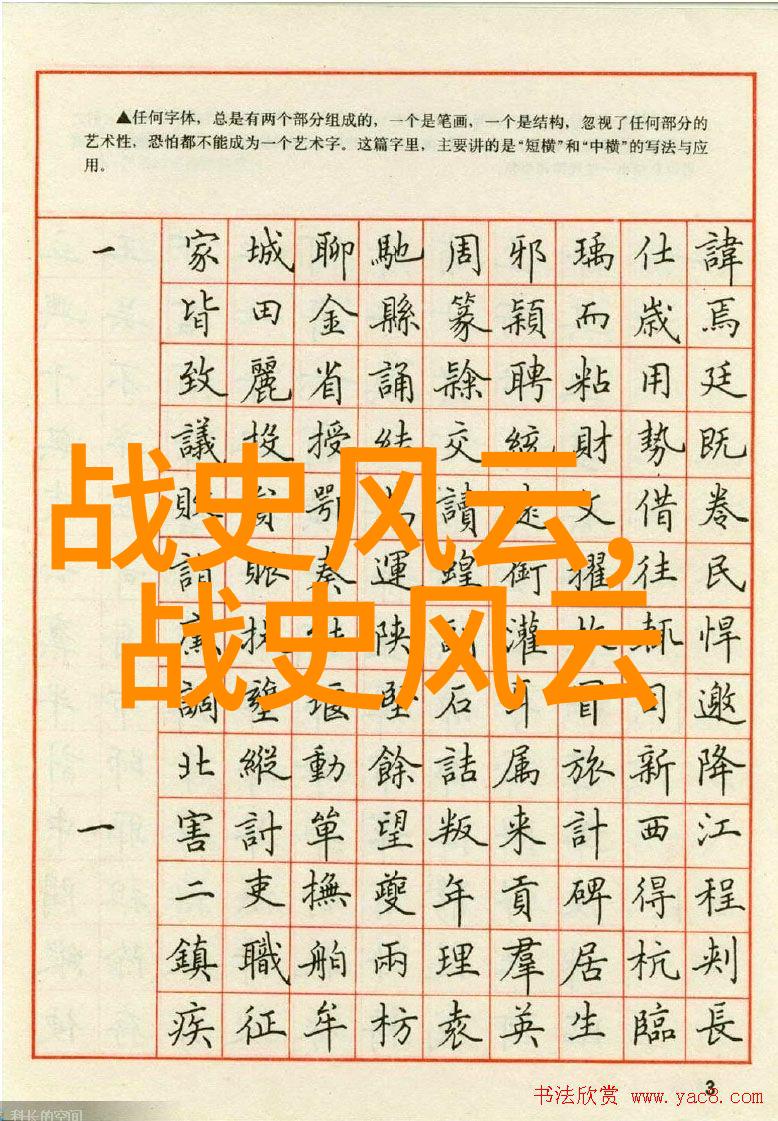 ▲任何字体，总是有两个部分组成的，一个是笔画，一个是结构，忽视了任何部分的
艺术性，恐怕都不能成为一个艺术字。这篇字里，主要讲的是“短横”和“中横”的写法与应
用。
一 家城聊馳周邪瑀仕諱
皆田金縣篆穎而歲焉
致麗省誦隸聘粘用廷
議投授結交統財勢既
鄂 讀 文借卷
賑奏運蝗銜擢往民
陝 灌 輒悍
調壅堰墜石耳冒司邀
北縱動餘詰属旅新降
一 害討單望叛来計西江
二吏撫夔年貢碑得程
鎮職舶兩理羣居杭刺
疾征牟枋袁英生臨長
战史风云,
战史风云
3
书法欣赏 www.yac8.com
科长的空间